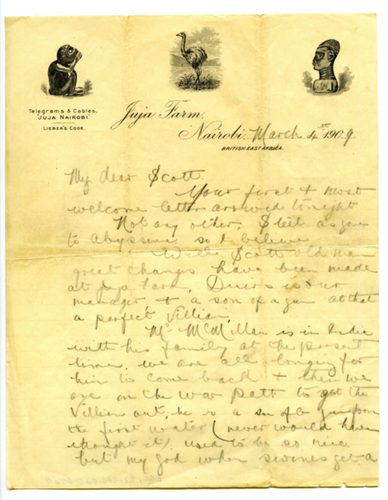 Telegrams & Cables,
"JUJA NAIROBI."
LIEBER'S CODE.
Juja Farm,
Nairobi, March 4th 1909
BRITISH EAST AFRICA.
My dear Scott
Your first & most
welcome letter arrived tonight
Not any other. gone
to Abyssinia so I believe
Well Scott old man
great changes have been made
at Juja Farm, is our
manager & a son of a gun at that
a perfect villian
Mr McMillan is in India
with his family at the present
time. we are all longing for
him to come back & then we
are on the war path to get the
villian out, he is a son of a from
the first water (never would have
thought it) used to be so nice
but my god when gets a